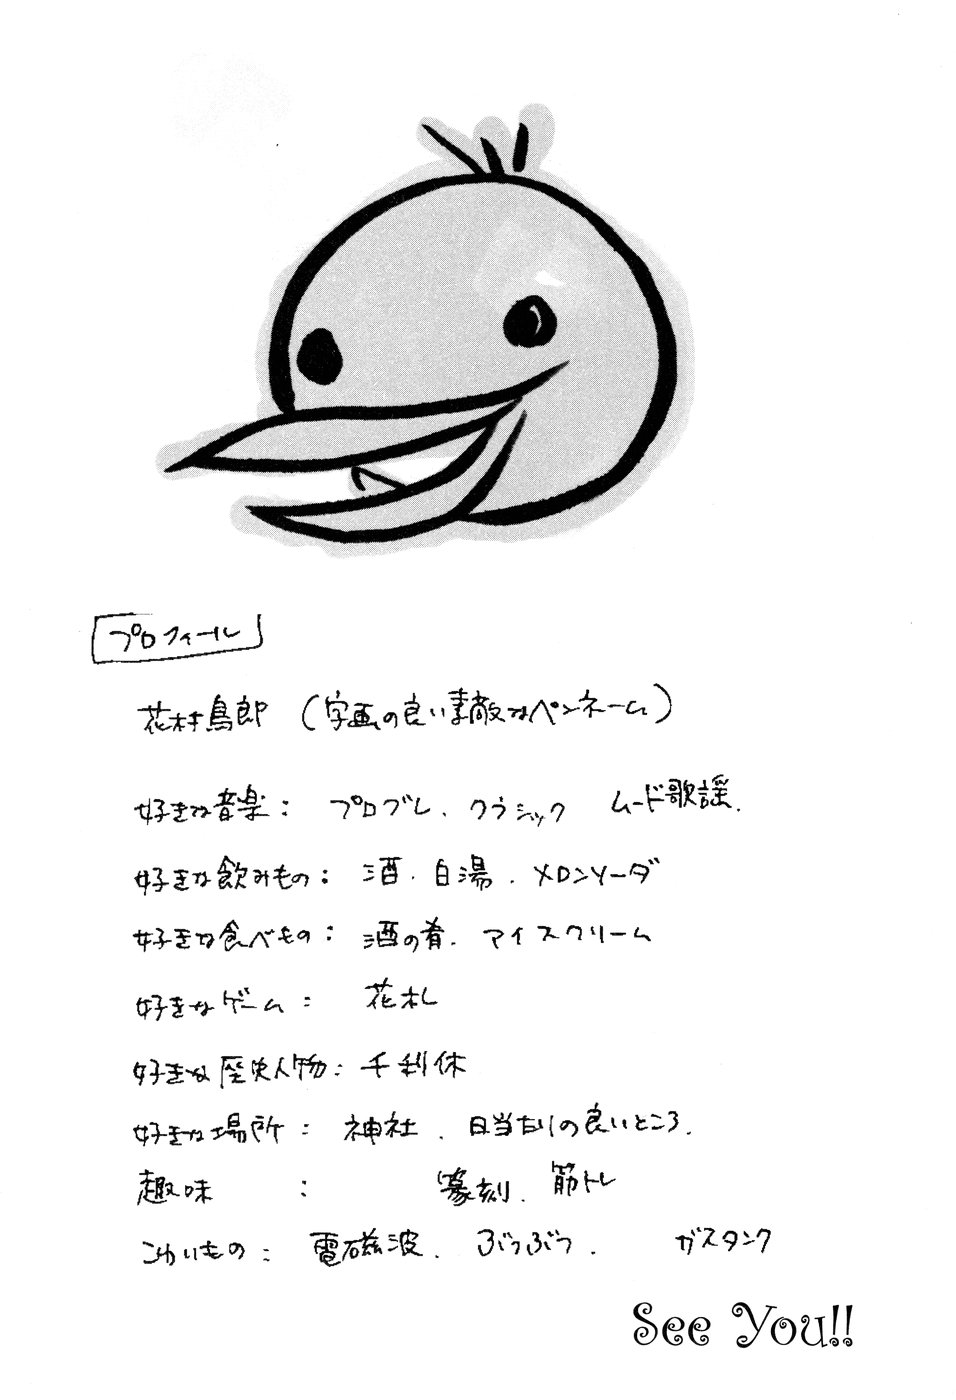 プロフィール
花村鳥郎 (字画の良い素敵なペンネーム)
好きな音楽: プログレ、クラシック ムード歌謡.
好きな飲みもの: 酒. 白湯. メロンソーダ
好きな食べもの: 酒の肴. アイスクリーム
好きなゲーム: 花札
好きな歴史人物: 千利休
好きな場所: 神社. 日当たりの良いところ.
趣味: 篆刻. 筋トレ
こわいもの: 電磁波. ぶつぶつ. ガスタンク
See You!!